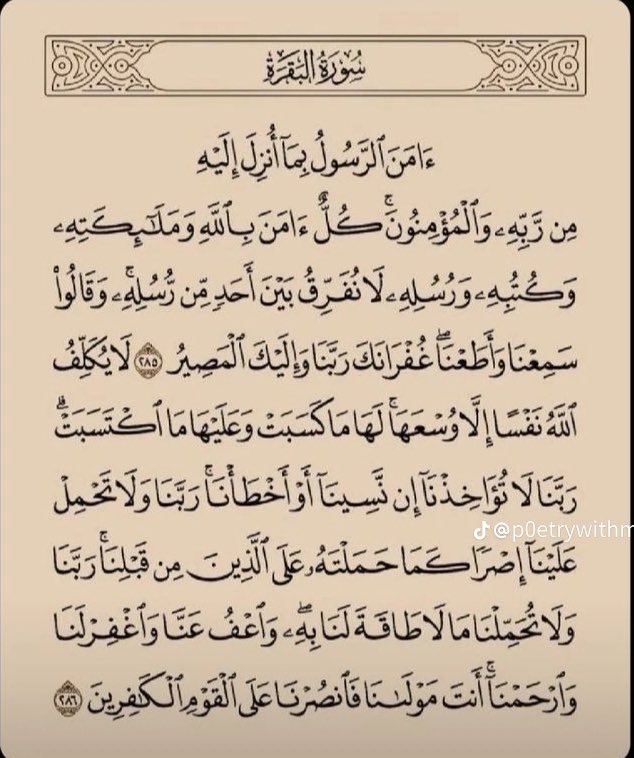 سُورَةُ البَقَرَةِ
ءَامَنَ ٱلرَّسُولُ بِمَآ أُنزِلَ إِلَيْهِ
مِن رَّبِّهِۦ وَٱلْمُؤْمِنُونَ ۚ كُلٌّ ءَامَنَ بِٱللَّهِ وَمَلَـٰٓئِكَتِهِۦ
وَكُتُبِهِۦ وَرُسُلِهِۦ لَا نُفَرِّقُ بَيْنَ أَحَدٍ مِّن رُّسُلِهِۦ ۚ وَقَالُوا۟
سَمِعْنَا وَأَطَعْنَا ۖ غُفْرَانَكَ رَبَّنَا وَإِلَيْكَ ٱلْمَصِيرُ ٢٨٥ لَا يُكَلِّفُ
ٱللَّهُ نَفْسًا إِلَّا وُسْعَهَا ۚ لَهَا مَا كَسَبَتْ وَعَلَيْهَا مَا ٱكْتَسَبَتْ ۗ
رَبَّنَا لَا تُؤَاخِذْنَآ إِن نَّسِينَآ أَوْ أَخْطَأْنَا ۚ رَبَّنَا وَلَا تَحْمِلْ
@p0etrywithm
عَلَيْنَآ إِصْرًا كَمَا حَمَلْتَهُۥ عَلَى ٱلَّذِينَ مِن قَبْلِنَا ۚ رَبَّنَا
وَلَا تُحَمِّلْنَا مَا لَا طَاقَةَ لَنَا بِهِۦ ۖ وَٱعْفُ عَنَّا وَٱغْفِرْ لَنَا
وَٱرْحَمْنَآ ۚ أَنتَ مَوْلَىٰنَا فَٱنصُرْنَا عَلَى ٱلْقَوْمِ ٱلْكَـٰفِرِينَ ٢٨٦